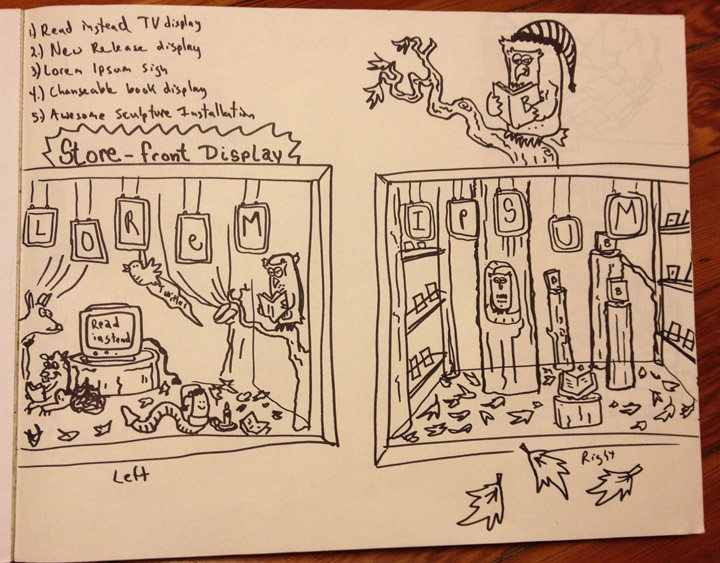 1) Read instead TV display
2.) New Release display
3) Lorem Ipsum sign
4.) Changeable book display
5) Awesome sculpture Installation
Store-front Display
LOReM
IPSUM
B
Read
instead
Twitter
B
B
B
Left
Right